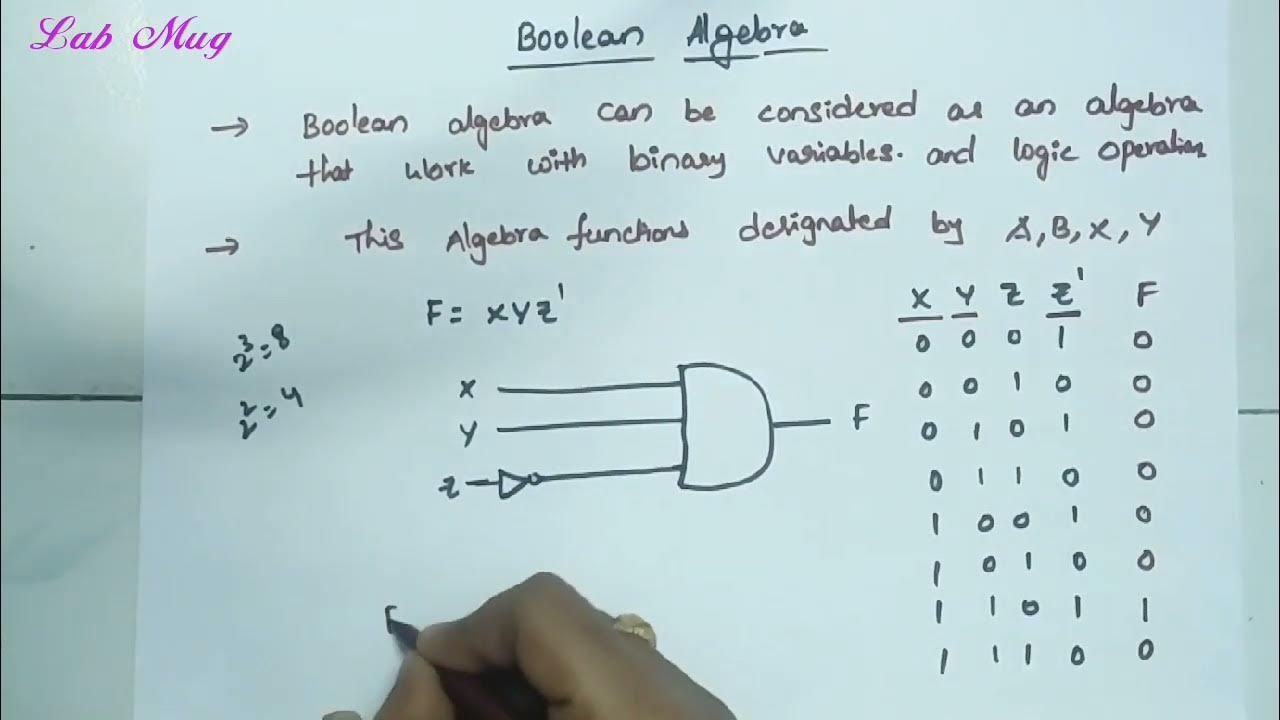 Lab Mug
Boolean Algebra
→ Boolean algebra can be considered as an algebra
that work with binary variables. and logic operation
→ This Algebra functions designated by A, B, X, Y
F = XYZ'
2³ = 8
2² = 4
X
Y
Z
F
X Y Z Z' F
0 0 0 1 0
0 0 1 0 0
0 1 0 1 0
0 1 1 0 0
1 0 0 1 0
1 0 1 0 0
1 1 0 1 1
1 1 1 0 0